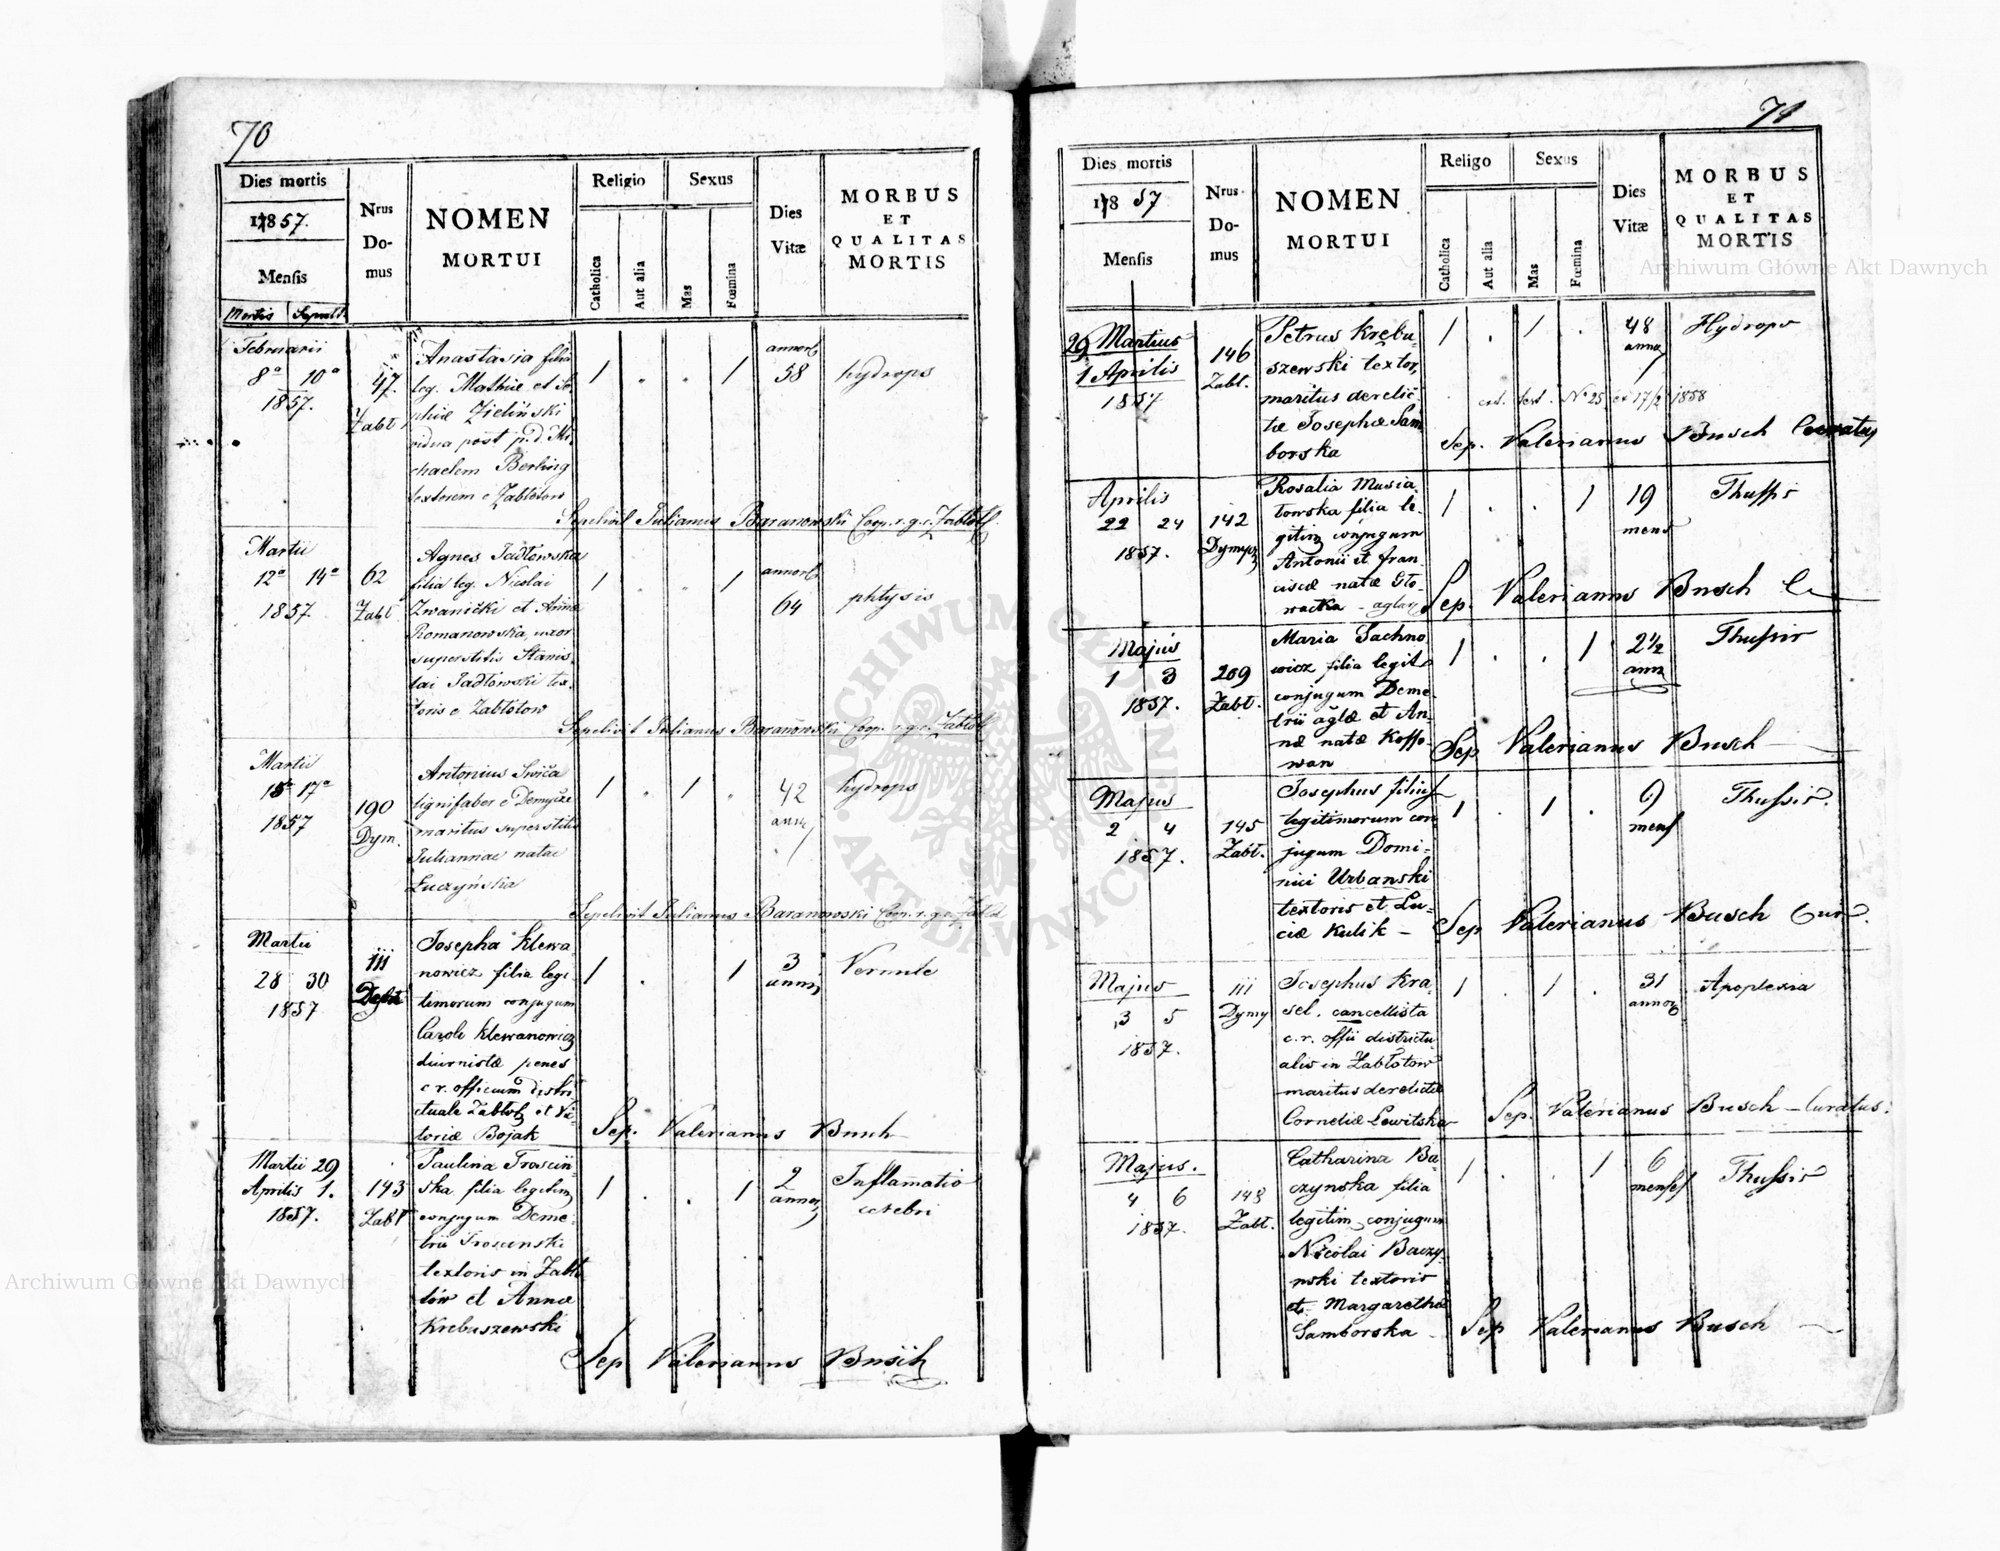 70
Dies mortis
1857.
Mensis
Mortis Sepult.
Nrus
Do-
mus
NOMEN
MORTUI
Religio
Catholica
Aut alia
Sexus
Mas
Fœmina
Dies
Vitæ
MORBUS
ET
QUALITAS
MORTIS
Februarii
8ª 10ª
1857.
47.
Zabł
Anastasia filia
leg. Mathiæ et So
phiæ Zieliński
vidua post p. d. Mi
chaelem Berling
textorem e Zabłotow
1 " " 1
annor
58
hydrops
Sepelivit Julianus Baranowski Coop. r. g. c. Zabłot
Martii
12ª 14ª
1857.
62
Zabł
Agnes Jadłowska
filia leg. Nicolai
Zwanicki et Annæ
Romanowska, uxor
superstitis Stanis
lai Jadłowski tex
toris e Zabłotow
1 " " 1
annor
64
phtysis
Sepelivit Julianus Baranowski Coop. r. g. c. Zabłot
Martii
15ª 17ª
1857
190
Dym.
Antonius Swiča
lignifaber e Demycze
maritus superstitis
Juliannae natae
Łuczyńska
1 " 1 "
42
ann
hydrops
Sepelivit Julianus Baranowski Coop. r. g. c. Zabł
Martii
28 30
1857
111
Josepha Klewa
nowicz filia legi
timorum conjugum
Caroli Klewanowicz
diurnistæ penes
c. r. officium distri
ctuale Zabłot et Vi
toriæ Bojak
1 . . 1
3
annor
Sep. Valerianus Busch
Martii 29
Aprilis 1.
1857.
143
Zabł
Paulina Troscin
ska filia legitim
conjugum Deme-
trii Troscinski
textoris in Zabło
tów et Annæ
Krebuszewski
1 . . 1
2
annor
Inflamatio
cerebri
Sep Valerianus Busch
71
Dies mortis
1857
Mensis
Nrus
Do-
mus
NOMEN
MORTUI
Religo
Catholica
Aut alia
Sexus
Mas
Fœmina
Dies
Vitæ
MORBUS
ET
QUALITAS
MORTIS
29 Martius
1 Aprilis
1857
146
Zabł.
Petrus Krebu-
szewski textor,
maritus derelic
tæ Josephæ Sam
borska
1 . 1 .
48
annor
Hydrops
ext. test. No 25 ex 17/2 1858
Sep. Valerianus Busch Curatus
Aprilis
22 24
1857.
142
Rosalia Musia
towska filia le-
gitim conjugum
Antonii et Fran
ciscæ natæ Gło
wacka
1 . . 1
19
mens
Thussis
Sep. Valerianus Busch C
Majus
1 3
1857.
209
Zabł.
Maria Sachno
wicz filia legit
conjugum Deme-
trii aglæ et An-
næ natæ Koffo-
wan
1 . . 1
2 1/2
ann
Thussis
Sep Valerianus Busch
Majus
2 4
1857.
145
Zabł.
Josephus filius
legitimorum con
jugum Domi-
nici Urbanski
textoris et Lu-
ciæ Kulik
1 . 1 .
9
mens
Thussis.
Sep Valerianus Busch Cur.
Majus
3 5
1857.
111
Dymy
Josephus Kra-
sel, cancellista
c. r. offii districtu
alis in Zabłotow
maritus derelictæ
Corneliæ Lewitska
1 . 1 .
31
annor
Apoplexia
Sep. Valerianus Busch Curatus.
Majus.
4 6
1857.
148
Zabł.
Catharina Ba-
czynska filia
legitim conjugum
Nicolai Baczy-
nski textoris
et Margarethæ
Samborska
1 . . 1
6
menses
Thussis
Sep Valerianus Busch
Archiwum Główne Akt Dawnych
Archiwum Główne Akt Dawnych
ARCHIWUM GŁÓWNE AKT DAWNYCH